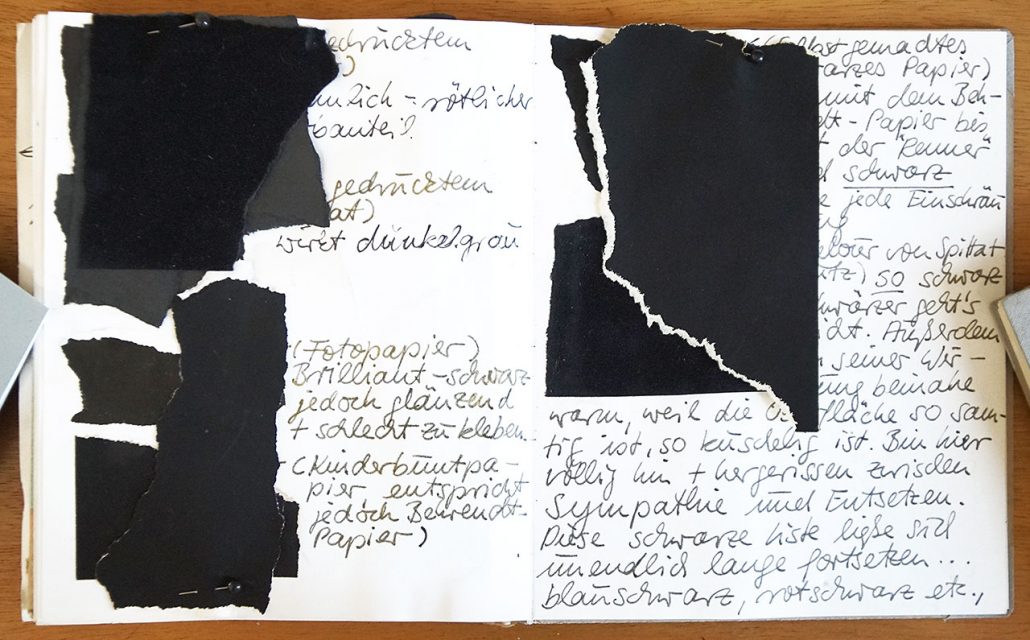 gedrücktem
rötlicher
gedrücktem
wirkt dunkelgrau
(Fotopapier)
Brilliant-schwarz
jedoch glänzend
+ schlecht zu kleben
(Kinderbuntpa-
pier entspricht
jedoch Behrendt-
Papier)
(Selbstgemachtes
Papier)
mit dem Beh-
Papier bis
der "Renner"
schwarz
jede Einschrän
von Spittat
so schwarz
geht's
Außerdem
seiner Wir-
beinahe
warm, weil die so sam-
tig ist, so kuschelig ist. Bin hier
völlig hin + hergerissen zwischen
Sympathie und Entsetzen.
Diese schwarze Liste ließe sich
unendlich lange fortsetzen...
blauschwarz, rotschwarz etc.,